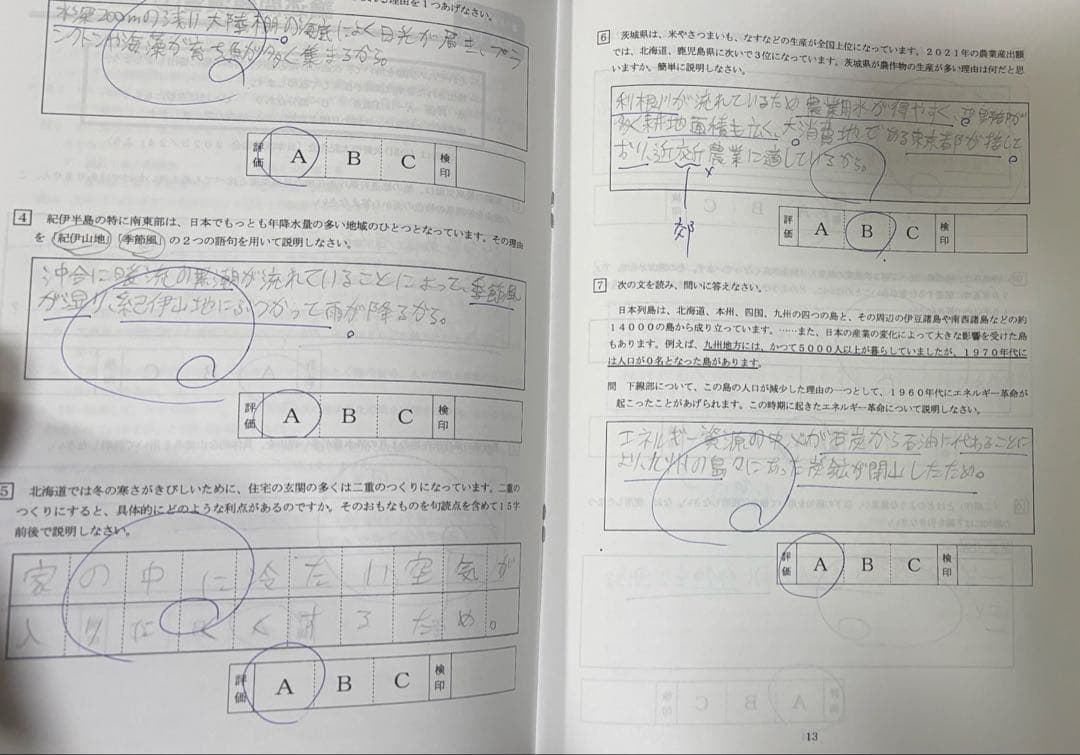 理由を1つあげなさい。
水深200mの浅い大陸棚の海底によく日光が届き、プラ
ンクトンや海藻が育ち魚が多く集まるから。
評価 A B C 検印
4 紀伊半島の特に南東部は、日本でもっとも年降水量の多い地域のひとつとなっています。その理由
を〔紀伊山地〕〔季節風〕の2つの語句を用いて説明しなさい。
沖合に暖流の黒潮が流れていることによって、季節風
が湿り、紀伊山地にぶつかって雨が降るから。
評価 A B C 検印
5 北海道では冬の寒さがきびしいために、住宅の玄関の多くは二重のつくりになっています。二重の
つくりにすると、具体的にどのような利点があるのですか。そのおもなものを句読点を含めて15字
前後で説明しなさい。
家の中に冷たい空気が
入りにくくするため。
評価 A B C 検印
6 茨城県は、米やさつまいも、なすなどの生産が全国上位になっています。2021年の農業産出額
では、北海道、鹿児島県に次いで3位になっています。茨城県が農作物の生産が多い理由は何だと思
いますか。簡単に説明しなさい。
利根川が流れているため農業用水が得やすく、平野部が
多く耕地面積も広く、大消費地である東京都が接して
おり、近交近農業に適しているから。
郊
評価 A B C 検印
7 次の文を読み、問いに答えなさい。
日本列島は、北海道、本州、四国、九州の四つの島と、その周辺の伊豆諸島や南西諸島などの約
14000の島から成り立っています。……また、日本の産業の変化によって大きな影響を受けた島
もあります。例えば、九州地方には、かつて5000人以上が暮らしていましたが、1970年代に
は人口が0名となった島があります。
問 下線部について、この島の人口が減少した理由の一つとして、1960年代にエネルギー革命が
起こったことがあげられます。この時期に起きたエネルギー革命について説明しなさい。
エネルギー資源の中心が石炭から石油に代わることに
より、九州の島々にあった炭鉱が閉山したため。
評価 A B C 検印
13